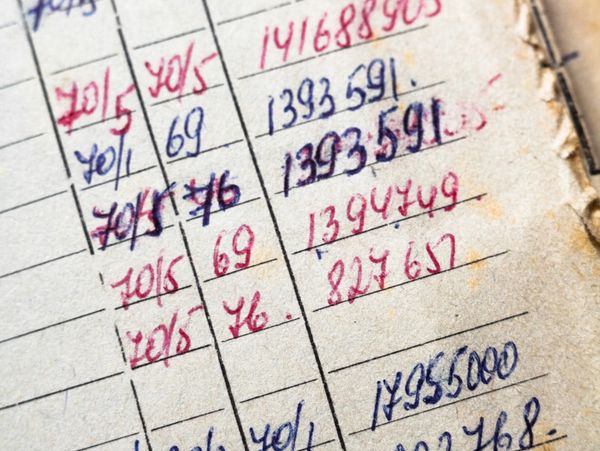 70/5 70/5 141688905
70/1 69 1393591.
70/5 76 1393591
70/5 69 1394749.
70/5 76. 827657
70/1 17955000
2768.